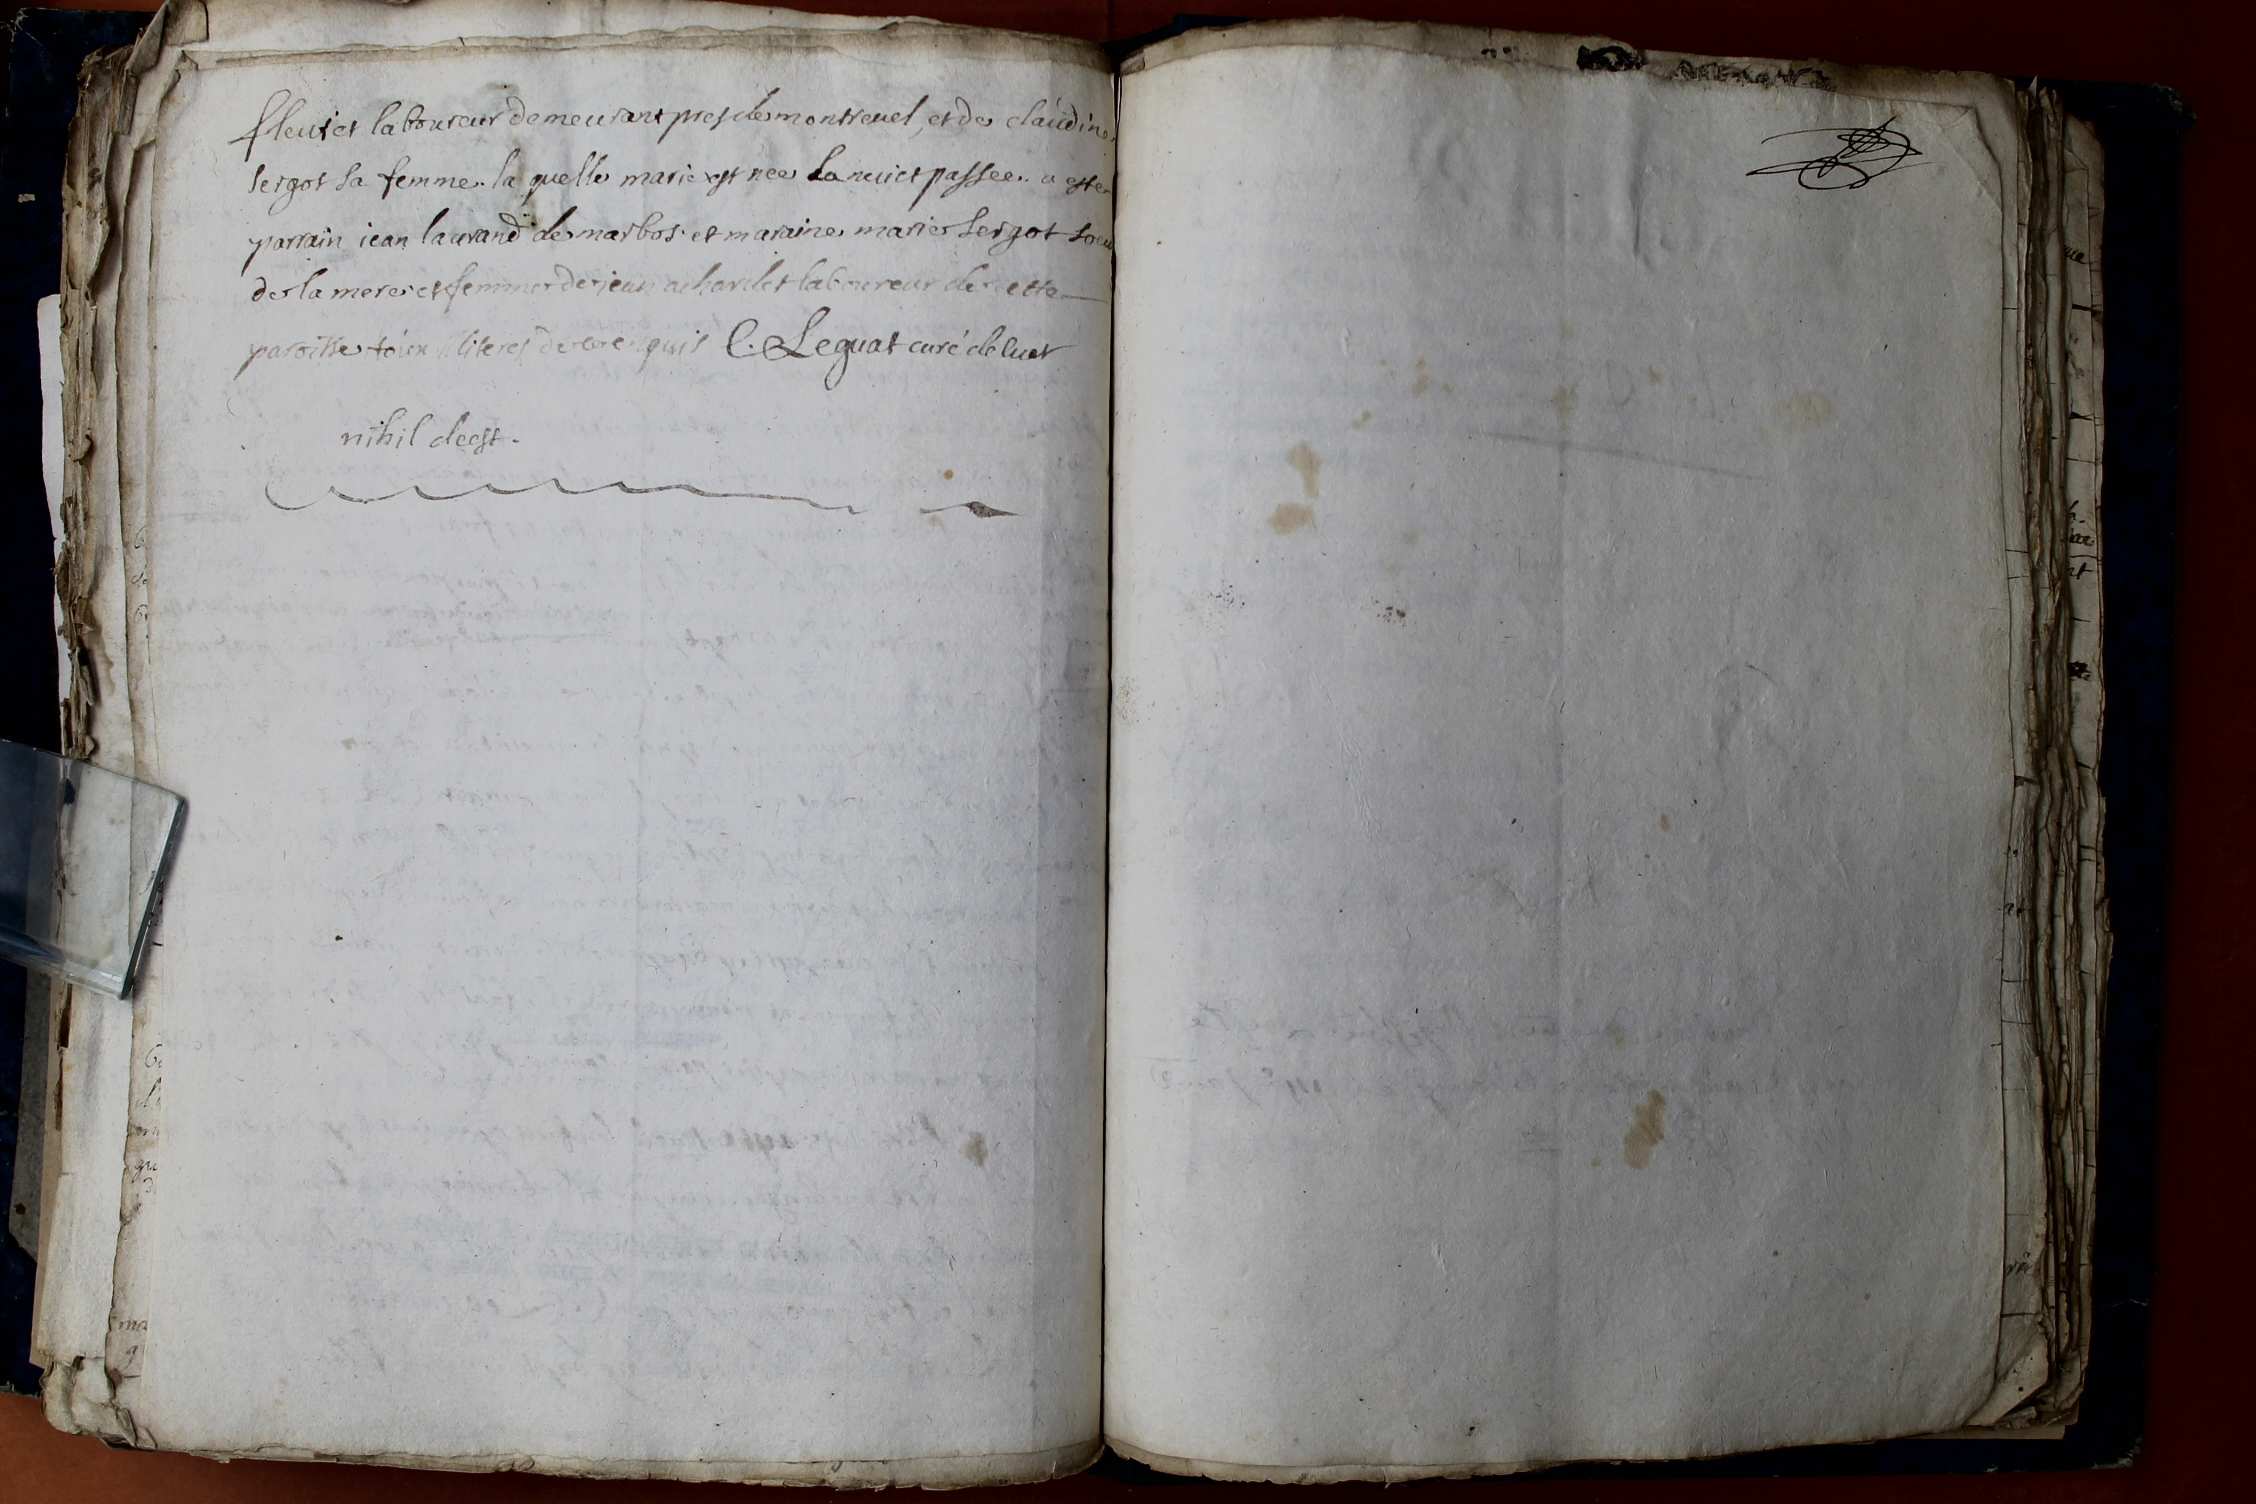 fleuriet laboureur demeurant pres de montrevel, et de claudine
sergot sa femme. la quelle marie est née la nuict passée. a este
parrain iean laurand de marbos. et maraine marie sergot soeur
de la mere et femme de jean achardet laboureur de cette
paroisse touts illiteres de ce enquis C. Leguat curé de luet
nihil deest.